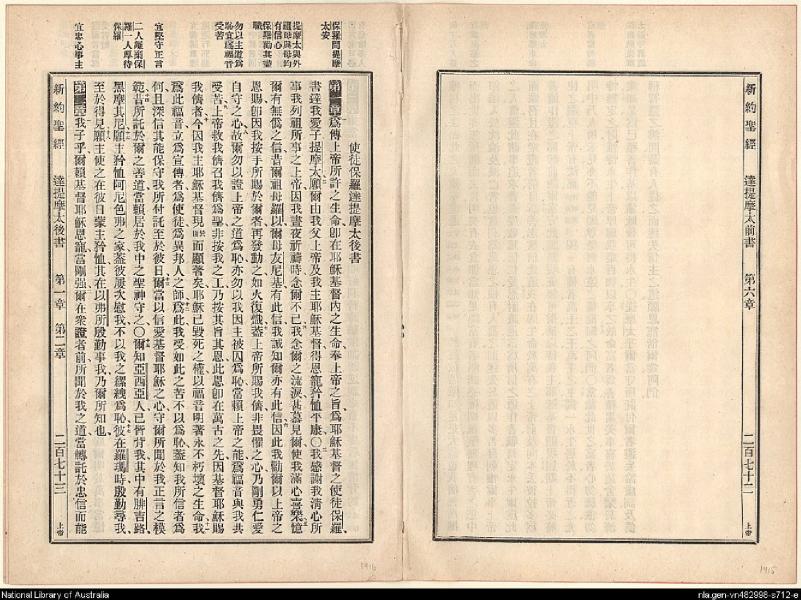 新約聖經 達提摩太前書 第六章 二百七十二 上帝
保羅問提摩
太安
提摩太與外
祖母與母均
有信心
保羅勸其盡
職
勿以主道爲
恥宜爲福音
受苦
宜堅守正言
二人離棄保
羅一人厚待
保羅
宜忠心事主
使徒保羅達提摩太後書
第一章爲傳上帝所許之生命卽在耶穌基督內之生命奉上帝之旨爲耶穌基督之使徒保羅
書達我愛子提摩太願爾由我父上帝及我主耶穌基督得恩寵矜恤平康〇我感謝我清心所
事我列祖所事之上帝因我晝夜祈禱時念爾不已我念爾之流淚甚慕見爾使我滿心喜樂憶
爾有無僞之信昔爾祖母羅以爾母友尼基有此信我誠知爾亦有此信因此我勸爾以上帝之
恩賜卽因我按手所賜於爾者再發動之如火復熾蓋上帝所賜我儕非畏懼之心乃剛勇仁愛
自守之心故爾勿以證上帝之道爲恥亦勿以我因主被囚爲恥當賴上帝之能爲福音與我共
受苦上帝救我儕召我儕爲聖非按我之工乃按其旨其恩此恩卽在萬古之先因基督耶穌賜
我儕者今因我主耶穌基督現而顯著矣耶穌已毀死之權以福音明著永不朽壞之生命我
爲此福音立爲宣傳者爲使徒爲異邦人之師爲此我受如此之苦不以爲恥蓋知我所信者爲
何且深信其能保守我所付託至於彼日爾當以信愛基督耶穌之心守爾所聞於我正言之模
範昔所託於爾之善道當賴居於我中之聖神守之〇爾知亞西亞人已皆背我其中有腓吉路
黑摩其尼願主矜恤阿尼色弗之家蓋彼屢次慰我不以我之縲絏爲恥彼在羅瑪時殷勤尋我
至於得見願主使之在彼日蒙主矜恤其在以弗所殷勤事我乃爾所知也
第二章我子乎爾賴基督耶穌恩寵當剛強爾在衆證者前所聞於我之道當轉託於忠信而能
新約聖經 達提摩太後書 第一章 第二章 二百七十三 上帝
1916
1915
National Library of Australia
nla.gen-vn482998-s712-e